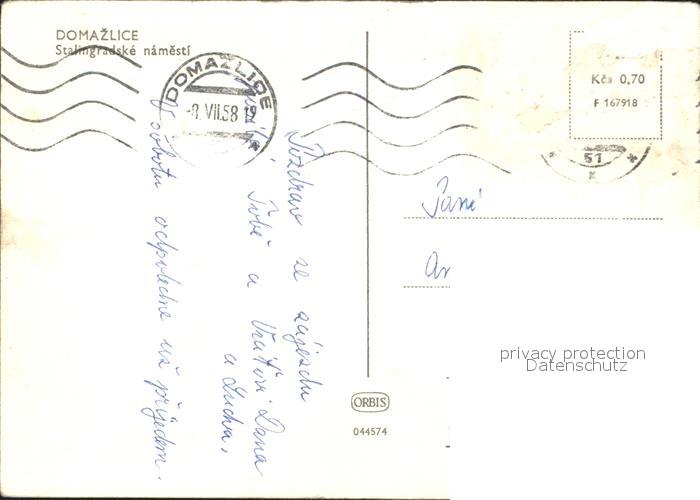 DOMAŽLICE
Stalingradské náměstí
DOMAŽLICE
-8. VII. 58 19
Kčs 0,70
F 167918
51
Pozdrav ze zájezdu
Tobě a
Dana
a
V sobotu odpoledne už přijedem.
Paní
ORBIS
044574
privacy protection
Datenschutz